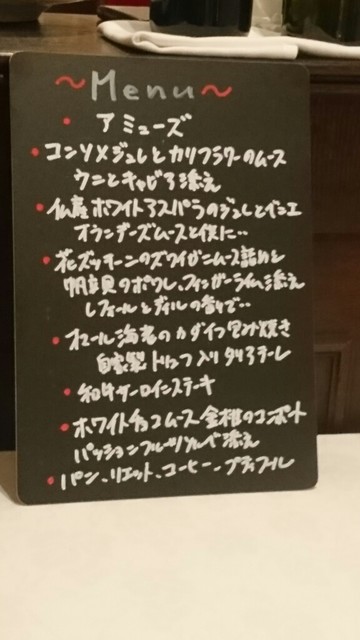 ~Menu~
・アミューズ
・コンソメジュレとカリフラワーのムース
ウニとキャビア添え
・仏産ホワイトアスパラのジュレとベニエ
オランデーズムースと供に…
・花ズッキーニのズワイガニムース詰めと
帆立貝のポワレ、フィンガーライム添え
シェリールとディルの香りで…
・オマール海老のカダイフ包み焼き
自家製トリュフ入りタリアテーレ
・和牛サーロインステーキ
・ホワイトチョコムース 金柑のコンポート
パッションフルーツソルベ添え
・パン、リエット、コーヒー、プティフール